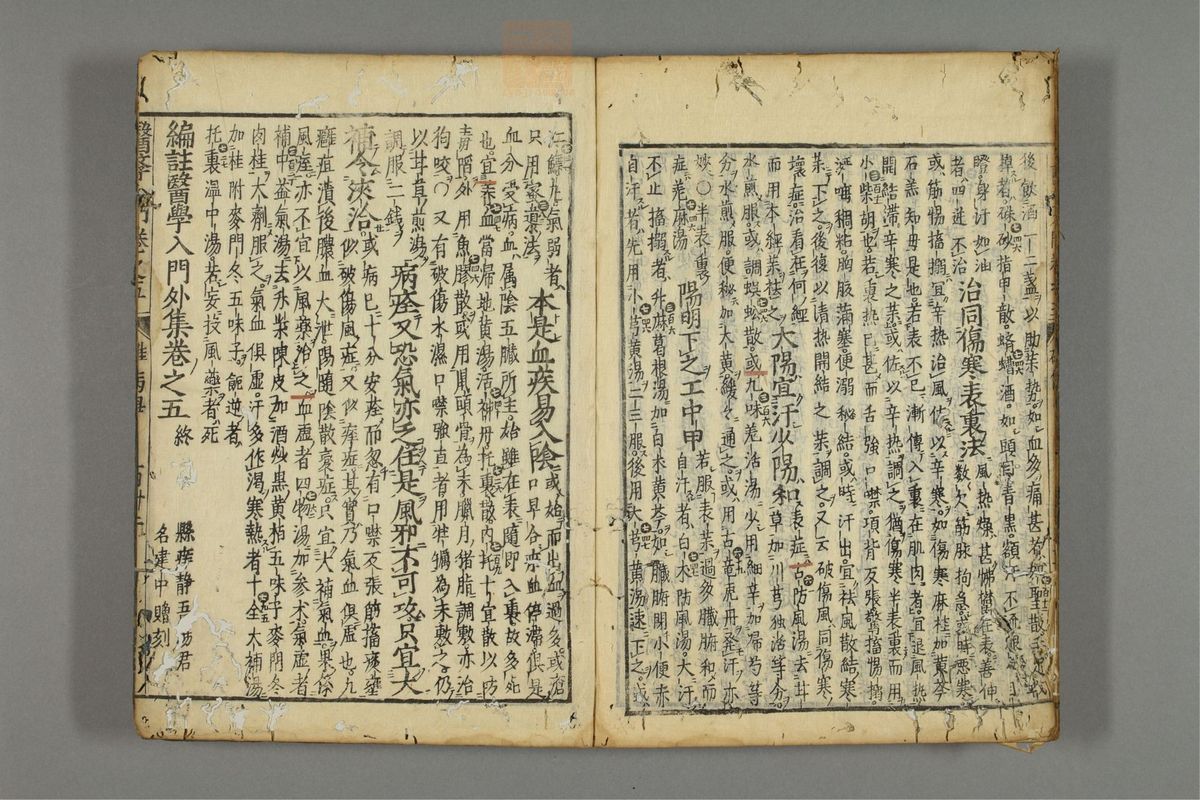 後飲酒一二盞以助藥勢如血多痛甚者
指甲散蛴螬酒如頭目青黑額汗不流眼
瞪身汗如油
者四逆不治
治同傷寒表裏法
風熱燥甚怫鬱在表善伸
數欠筋脉拘急或時惡寒
或筋惕搐搦宜辛熱治風佐以辛寒如傷寒麻桂加黄芩
石膏知母是也若表不已漸傳入裏在肌肉者宜退風熱
開結滯辛寒之藥或佐以辛熱調之猶傷寒半表裏而用
小柴胡也若裏熱已甚而舌強口噤項背反張驚搐惕搦
涎唾稠粘胸腹滿塞便溺秘結或時汗出宜祛風散結寒
藥下之後後以清熱開結之藥調之又云破傷風同傷寒
壞症治看在何經
而用本經藥祛之
太陽宜汗少陽和
表症古防風湯去甘
草加川芎獨活等分
水煎服或調蜈蚣散或九味羌活湯少用細辛加歸芍等
分水煎服便秘加大黄緩緩通之或用古竜虎丹發汗亦
妙○半表裏
症羌麻湯
陽明下之工中甲
若服表藥過多臟腑和而
自汗者白朮防風湯大汗
不止搐搦者升麻葛根湯加白朮黄芩如臟腑閉小便赤
自汗者先用小芎黄湯二三服後用大芎黄湯速下之或
江鰾丸氣弱者
只用蜜導法
本是血疾易入陰
或始而出血過多或瘡
口早合瘀血停滯俱是
血分受病血屬陰五臟所主始雖在表隨即入裏故多死
也宜養血當歸地黄湯活神丹托裏散內托十宣散以防
毒陷外用魚膠散或用鼠頭骨為末臘月猪脂調敷亦治
狗咬○又有破傷水濕口噤強直者用牡蠣為末敷之仍
以甘草煎湯
調服二錢
病痊又恐氣亦乏住是風邪不可攻只宜大
補令浹洽
或病已十分安痊而忽有口噤反張筋搐痰壅
似破傷風症又似痓症其實乃氣血俱虛也九
癰疽潰後膿血大泄陽隨陰散衰症只宜大補氣血果係
風痓亦不宜以風藥治之血虛者四物湯加參朮氣虛者
補中益氣湯去升柴陳皮加酒炒黑黄柏五味子麥門冬
肉桂大劑服之氣血俱虛汗多作渴寒熱者十全大補湯
加桂附麥門冬五味子能逆者
托裏溫中湯若妄投風藥者死
編註醫學入門外集巻之五 終
名建中贈刻